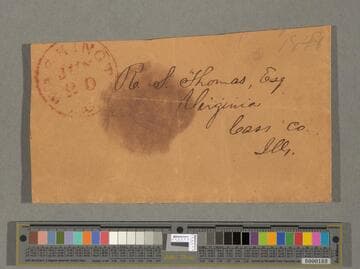 1848
WASHINGT
JUN
20
R. S. Thomas, Esq
Virginia
Cass Co.
Ills.